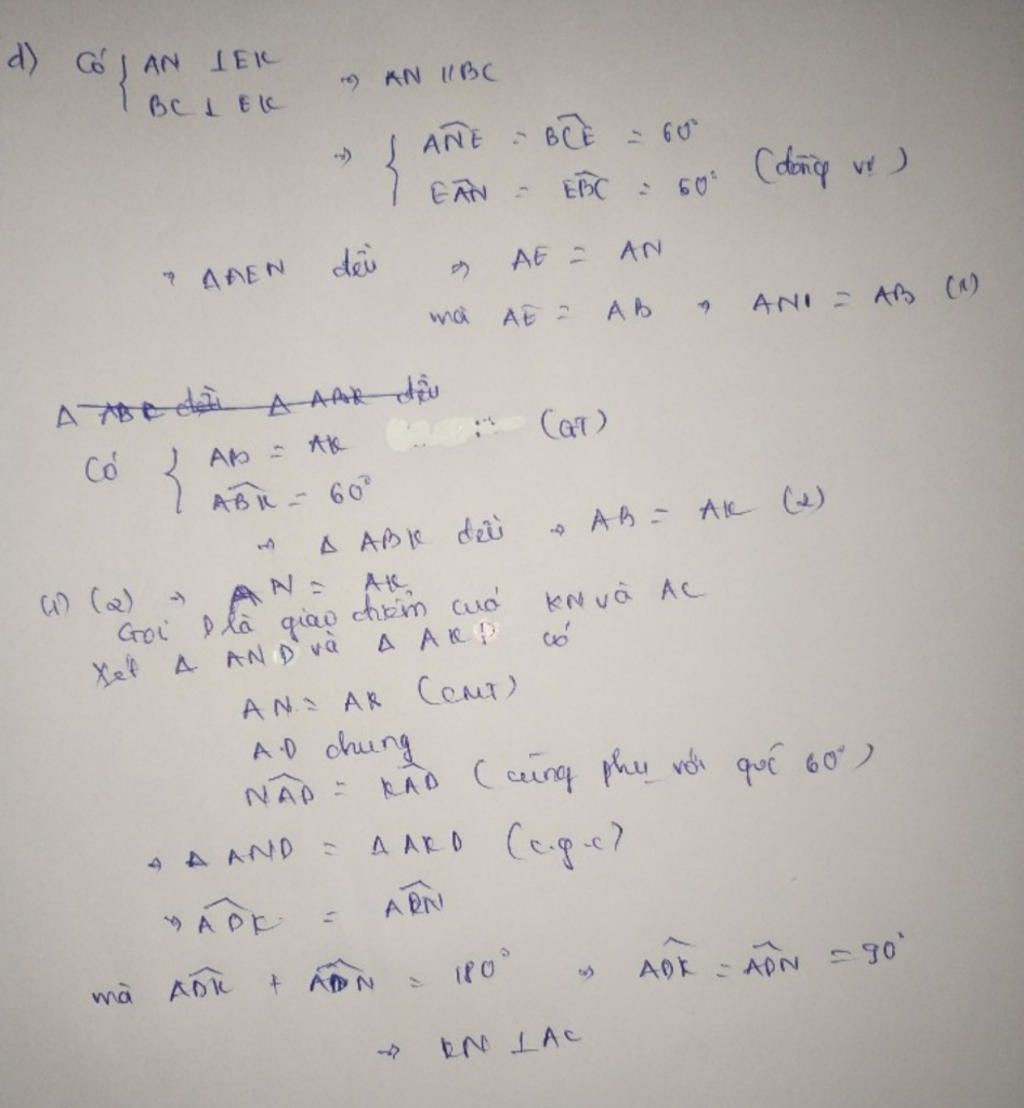 d) Có { AN ⊥ EK
BC ⊥ EK
⇒ AN // BC
⇒ { ANE = BCE = 60°
EAN = EBC = 60° (đồng vị)
⇒ ΔAEN đều ⇒ AE = AN
mà AE = AB ⇒ AN = AB (1)
Có { AB = AK (GT)
ABK = 60°
⇒ Δ ABK đều ⇒ AB = AK (2)
(1) (2) ⇒ AN = AK
Gọi D là giao điểm của KN và AC
Xét Δ AND và Δ AKD có
AN = AK (CMT)
AD chung
NAD = KAD (cùng phụ với góc 60°)
⇒ Δ AND = Δ AKD (c.g.c)
⇒ ADK = ADN
mà ADK + ADN = 180° ⇒ ADK = ADN = 90°
⇒ KN ⊥ AC